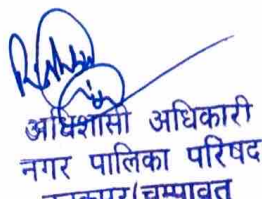 अधिशासी अधिकारी
नगर पालिका परिषद
(चम्पावत